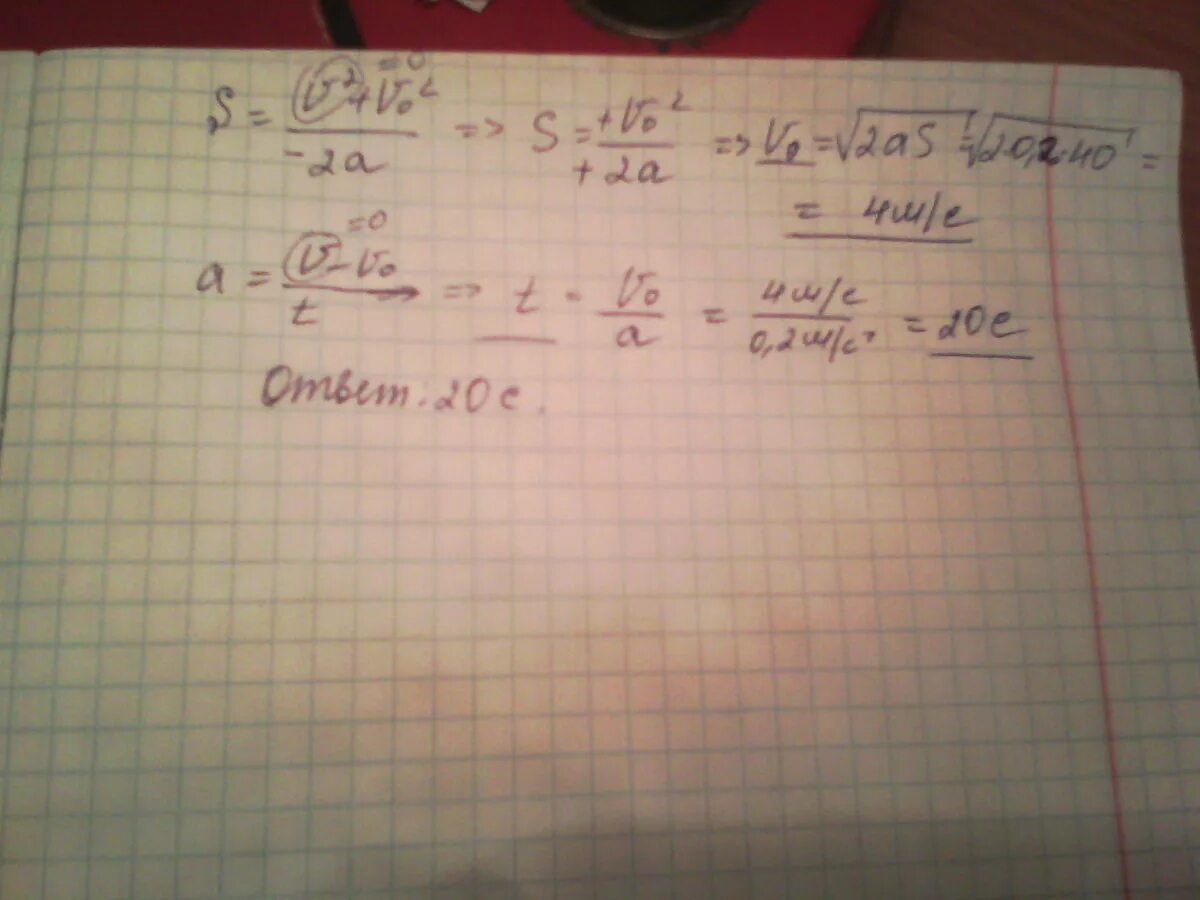 =0
S = (V² + V₀²)/(-2a) => S = (+V₀²)/(+2a) => V₀ = √2aS = √2·0,2·40 =
= 4м/с
=0
a = (V - V₀)/t => t = V₀/a = (4м/с)/(0,2м/с²) = 20с
Ответ: 20с.